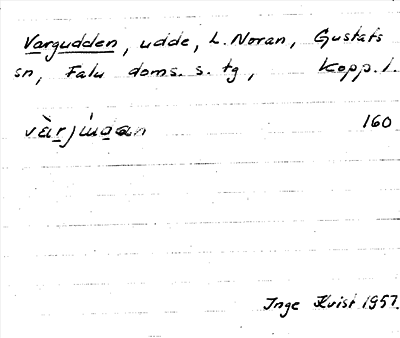 Vargudden, udde, L. Noran, Gustafs
sn, Falu doms. s. tg, Kopp. l.
160
Inge Kvist 1957.